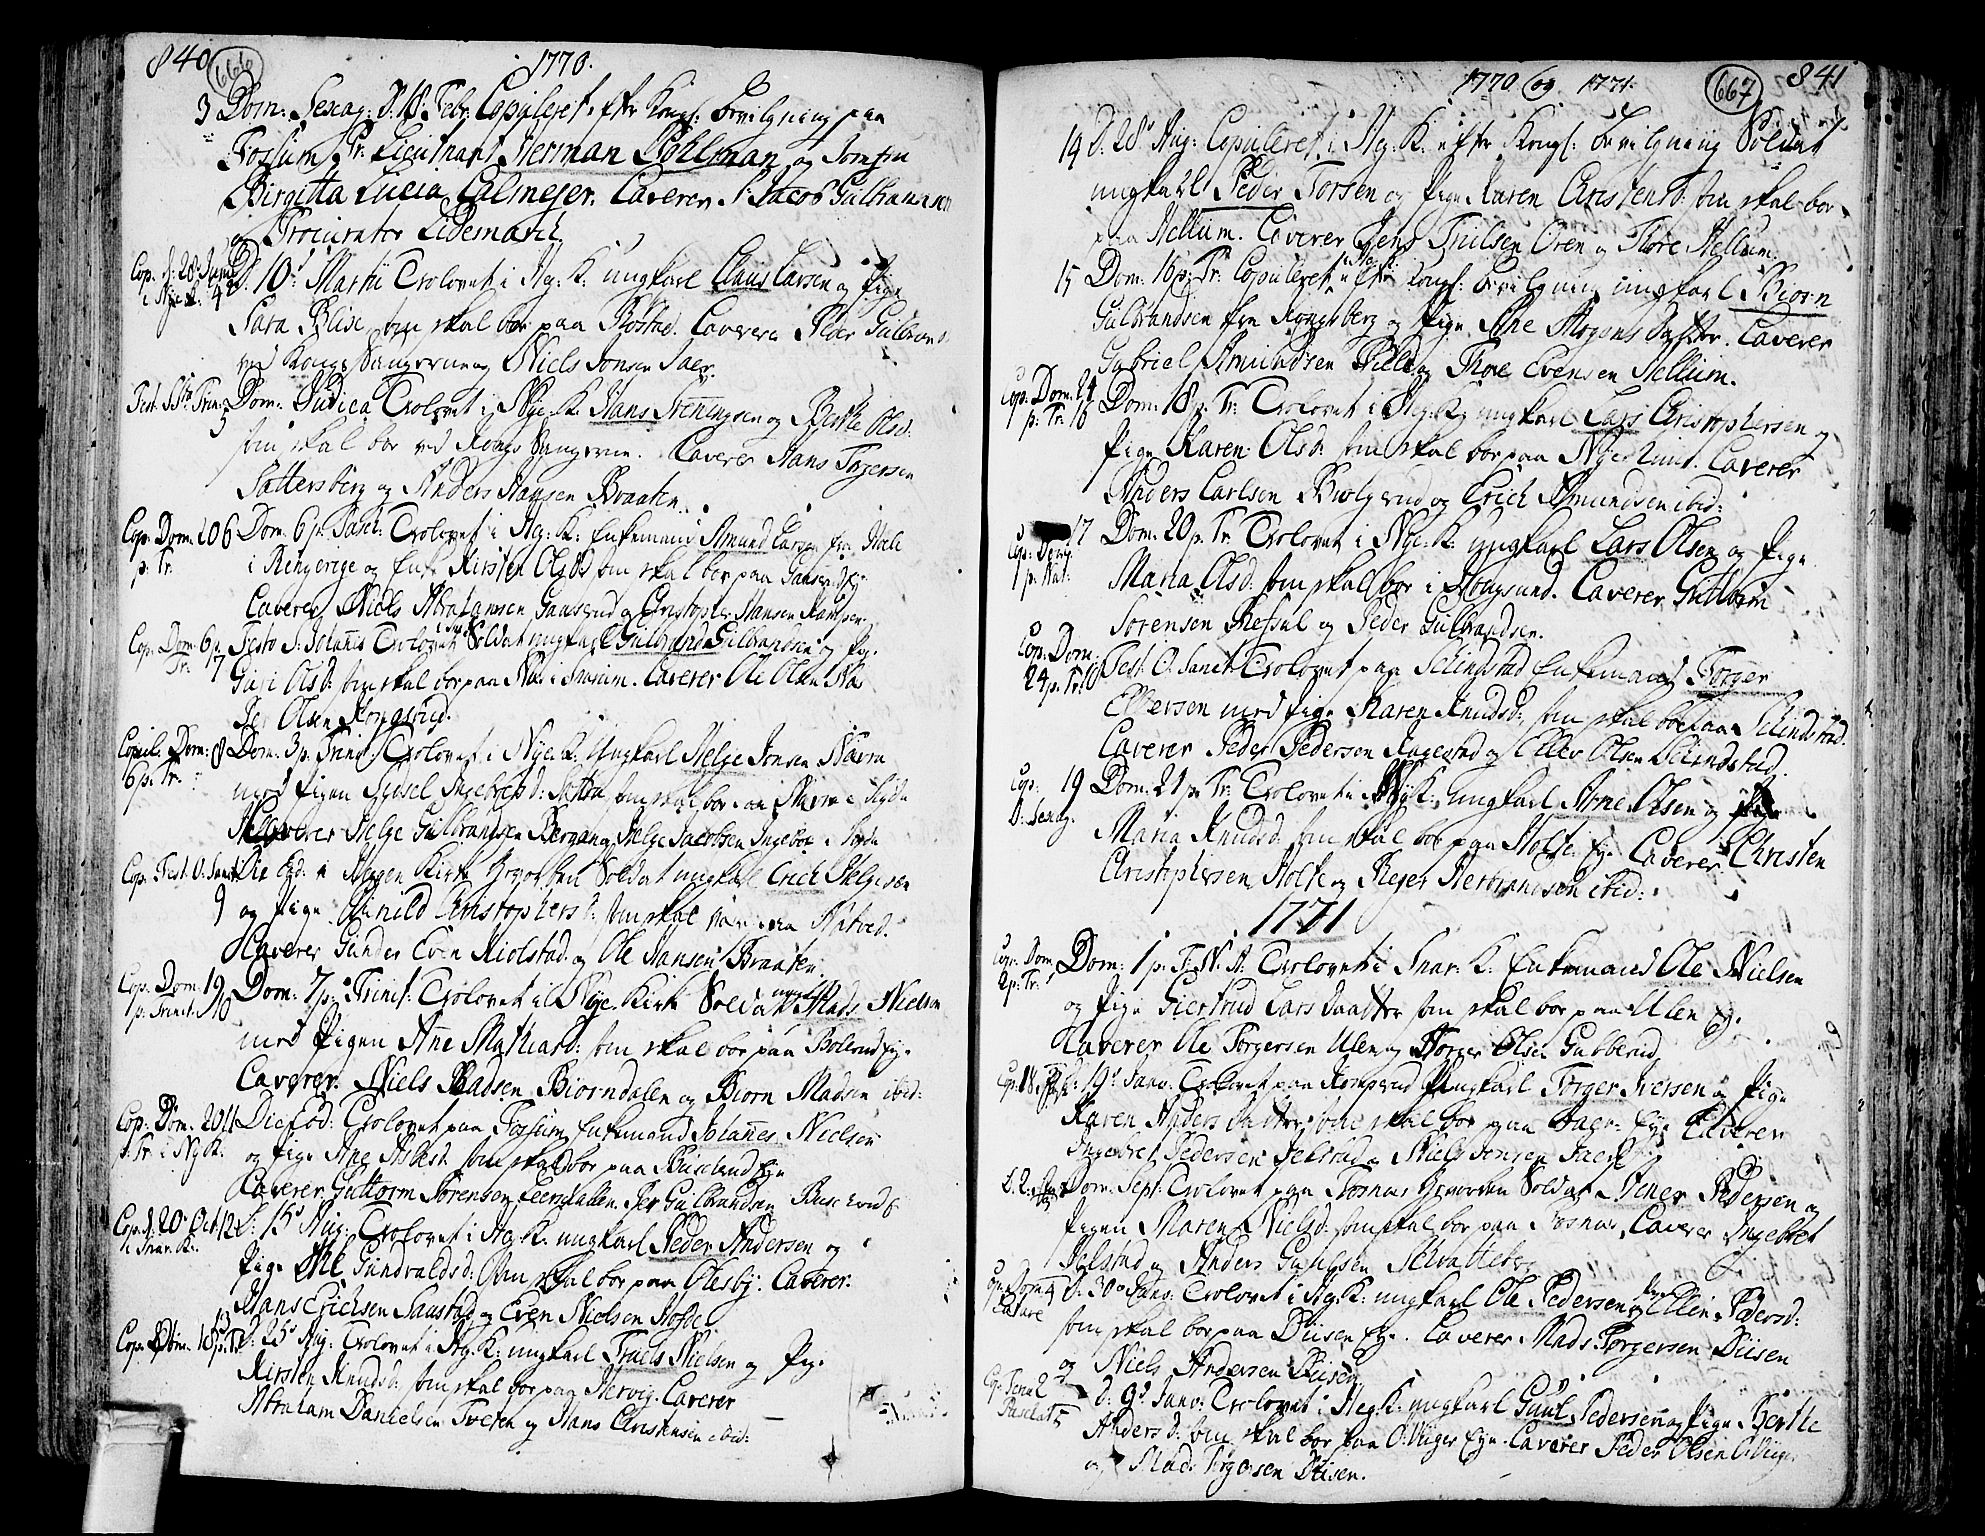 840 666 1770.
3 Dom: Sexag: d: 18: Febr: Copuleret efter Kongl: bevilgning paa
Fossum Hr. Lieutnant Herman Pohlman og Jomfru
Birgitta Lucia Calmejer. Caverer S: Jacob Gulbransen
og Procurator Lidemarck
Cop. d: 28: Junii i Nye K: 4 d. 10d Martii Trolovet i Hg: K: ungkarl Claus Larsen og Pige
Sara Blise, som skal boe paa Bostad. Caverer Peder Gulbrans:
ved Kongs Saugerne og Niels Jonsen Saer.
Fest. S: Trin: 5 Dom: Judica Trolovet i Nye K: Hans Henningsen og Berthe Olsd:
som skal boe ved Kongs Saugerne. Caverer Hans Torgersen
Sattersberg og Anders Hansen Braaten.
Cop. Dom. 10 p: Tr. 6 Dom: 6 p. Pasch: Trolovet i Hg: K: Enkemand Amund Larsen fra Hole
i Ringerige og Enke Kirsten Olsd: som skal boe paa Gaaserud Eje
Caverer Niels Abrahamsen Gaaserud og Christopher Hansen Kampen.
Cop. Dom. 6 p. Tr. 7 Festo S: Johannis Trolovet i Snar: Soldat ungkarl Gulbrand Gulbrandsen og Pige
Guri Olsd: som skal boe paa Næs i Snarum. Caverer Ole Olsen Næs
Per Olsen Kongsrud.
Copul: Dom: 6 p. Tr. 8 Dom: 3 p. Trinit: Trolovet i Nye K: Ungkarl Helge Jonsen Narva
med Pigen Sidsel Ingebregtsd: Sattra, som skal boe paa Narve i Sigdal
Caverer Helge Gulbrandsen Bergan og Helge Jacobsen Ingeboe i Sigdal
Cop. Fest. O. Sanct: 9 Die Eod: i Haugen Kirke Trolovet Soldat ungkarl Erich Helgesen
og Pige Gunild Christophersd: som skal boe paa Natved.
Caverer Gunder Even Kiolstad og Ole Hansen Braaten.
Cop. Dom: 19 p: Trinit: 10 Dom: 7 p: Trinit: Trolovet i Nye Kirke Soldat ungkarl Mads Nielsen
med Pigen Ane Mathiasd: som skal boe paa Bollerud Eje.
Caverer Niels Madsen Biorndalen og Biorn Madsen ibid:
Cop. Dom. 20 p. Tr. i Ny K: 11 Die Eod: Trolovet paa Fossum Enkemand Johannes Nielsen
og Pige Ane Aslesd: som skal boe paa Buskerud Eje
Caverer Guttorm Sørensen Leerdalen, Per Gulbrandsen Buskerud E.
Cop. d. 20 Oct. i Snar. K: 12 d. 15d Aug: Trolovet i Hg: K: ungkarl Peder Andersen og
Pige Ahl Gundvaldsd: som skal boe paa Olesby. Caverer
Hans Erichsen Saustad og Even Nielsen Hofde.
Cop. Dom. 18 p. Tr. 13 d: 25d Aug: Trolovet i Hg: K: ungkarl Truels Nielsen og Pige
Kirsten Knudsd: som skal boe paa Hervig. Caverer
Abraham Danielsen Tveren og Hans Christensen ibid:
1770 og 1771. 667 841
14 d. 28d Aug: Copuleret i Hg: K: efter Kongl: bevilgning Soldat
ungkarl Peder Torsen og Pige Karen Christensd: som skal boe
paa Hellum. Caverer Jens Truelsen Oren og Tore Hellum.
15 Dom: 16 p: Tr: Copuleret i Hg: K: efter Kongl: bevilgning ungkarl Biorn
Gulbrandsen fra Kongsberg og Pige Ane Mogens Datter. Caverer
Gabriel Amundsen og Thore Evensen Hellum.
Cop. Dom. 24 p: Tr. 16 Dom: 18 p. Tr: Trolovet i Hg: K: ungkarl Lars Christophersen og
Pige Karen Olsd: som skal boe paa Nyerlund. Caverer
Anders Carlsen Biolgerud og Erich Amundsen ibid:
Cop: Dom: 1 p: Nat: 17 Dom: 20 p. Tr: Trolovet i Nye: K: ungkarl Lars Olsen og Pige
Maria Olsd: som skal boe i Hougsund. Caverer Guttorm
Sørensen Refsal og Peder Gulbrandsen.
Cop. Dom: 24 p. Tr. 18 Fest: O: Sanct: Trolovet paa Sælindstad Enkemand Torger
Ellefsen med Pige Karen Knudsd: som skal boe paa Sælindstad.
Caverer Peder Pedersen Kagestad og Ellev Olsen Sælindstad.
Cop: D: Sexag. 19 Dom: 21 p. Tr: Trolovet i Ny K: ungkarl Arne Olsen og Pige
Maria Knudsd: som skal boe paa Holte Eje. Caverer Christen
Christophersen Holte og Reyer Herbrandsen ibid:
1771
Cop: Dom 2 p: Tr: 1 Dom: 1 p. F. N. A: Trolovet i Snar: K: Enkemand Ole Nielsen
og Pige Giertrud Lars Daatter som skal boe paa Ulen Eje.
Caverer Ole Torgersen Ulen og Torger Olsen Gubberud.
Cop. 18 d: 19d Janv: Trolovet paa Komperud Ungkarl Torger Iversen og Pige
Karen Anders Datter, som skal boe paa Eje Caverer
Ingebret Pedersen Jelstad og Niels Jensen Saer.
Dom: Sept: Trolovet paa Fosnes Soldat Stener Pedersen og
Pigen Maren Nielsd: som skal boe paa Fosnes, Caverer Ingebret
Jelstad og Anders Gulsen
Cop. Dom Lætare 4 d. 30d Janv: Trolovet i Hg: K: ungkarl Ole Pedersen og Pige Ellen Pedersd:
som skal boe paa Diisen Eje. Caverer Mads Torgersen Diisen
og Niels Andersen Diisen
Cop. Feria 2 Paschat: 5 d. 9d Janv: Trolovet i Heg: K: ungkarl Guul Pedersen og Pige Berthe
Andersd: som skal boe paa Eje. Caverer Peder Olsen
og Mads Torgersen Diisen.